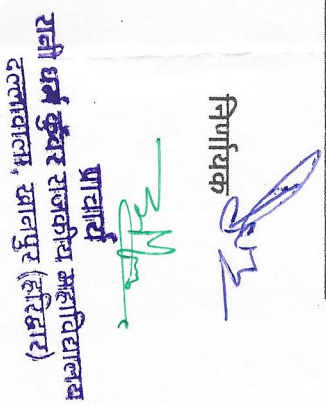 निर्णायक
प्राचार्य
रानी धर्म कुंवर राजकीय महाविद्यालय
दल्लावाला, खानपुर (हरिद्वार)